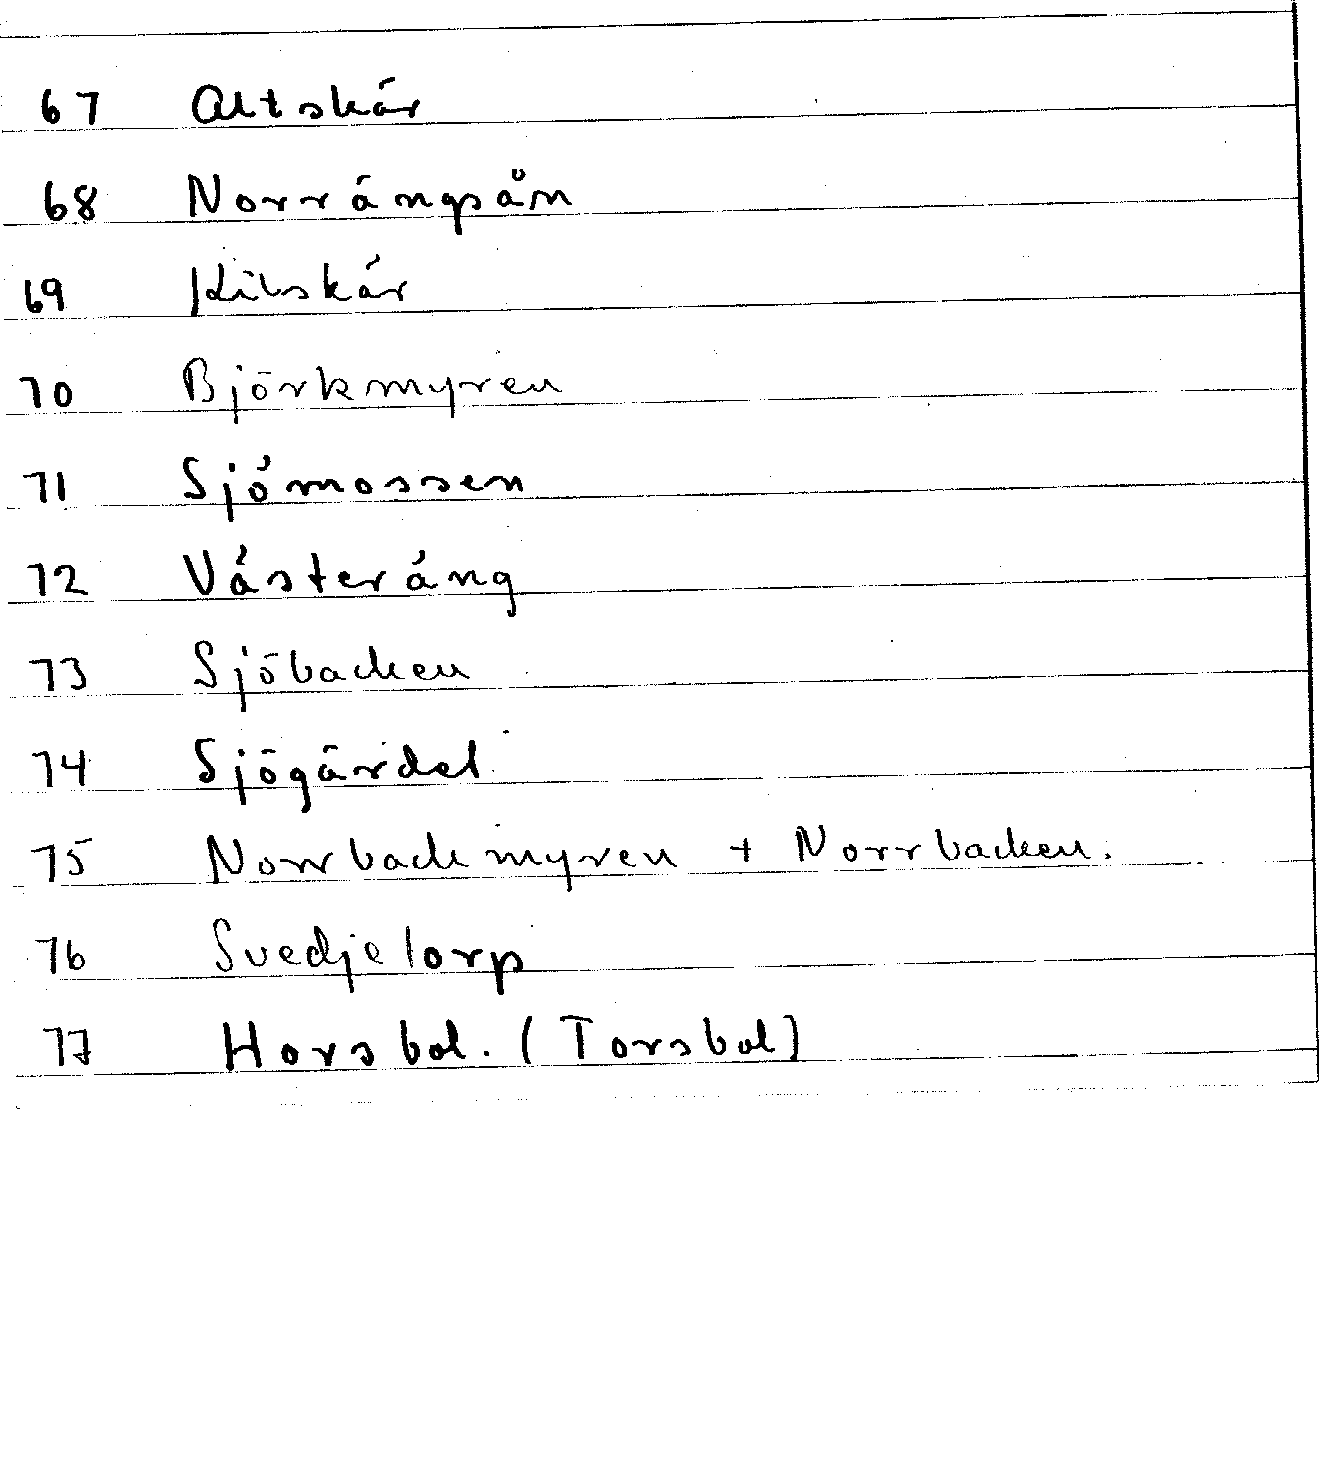 67 Altskär
68 Norrängsån
69 Kilskär
70 Björkmyren
71 Sjömossen
72 Västeräng
73 Sjöbacken
74 Sjögärdet
75 Norrbackmyren + Norrbacken.
76 Svedjetorp
77 Horsbol. (Torsbol)